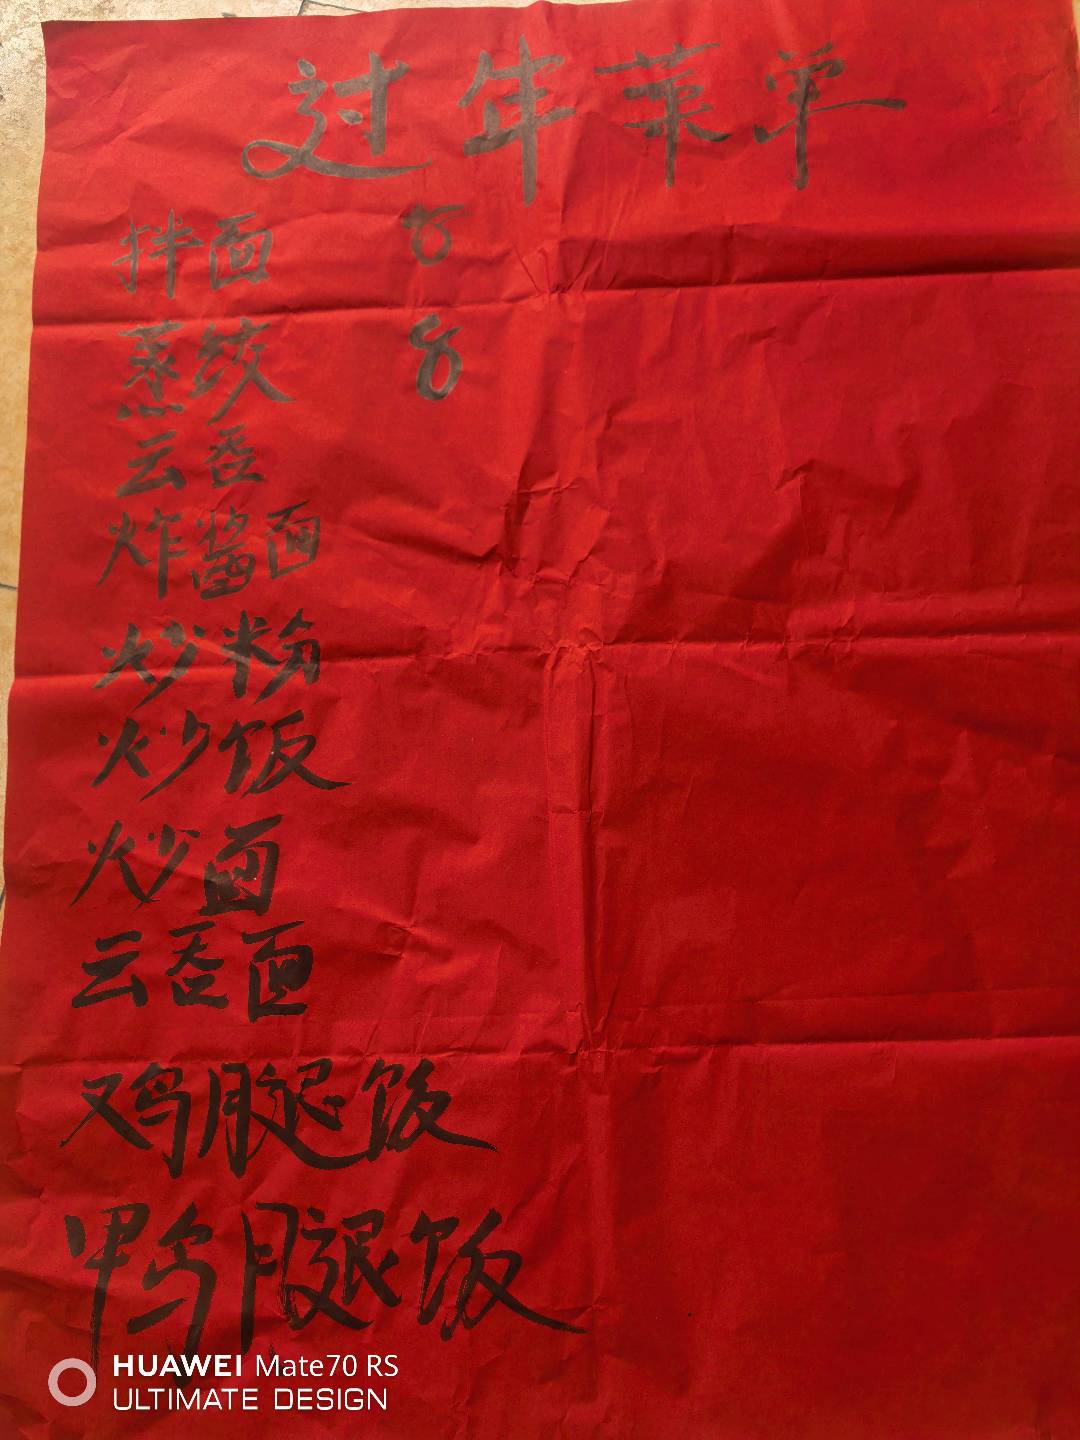 过年菜单
拌面 8
蒸绞 8
云吞
炸酱面
炒粉
炒饭
炒面
云吞面
鸡腿饭
鸭腿饭
HUAWEI Mate70 RS
ULTIMATE DESIGN